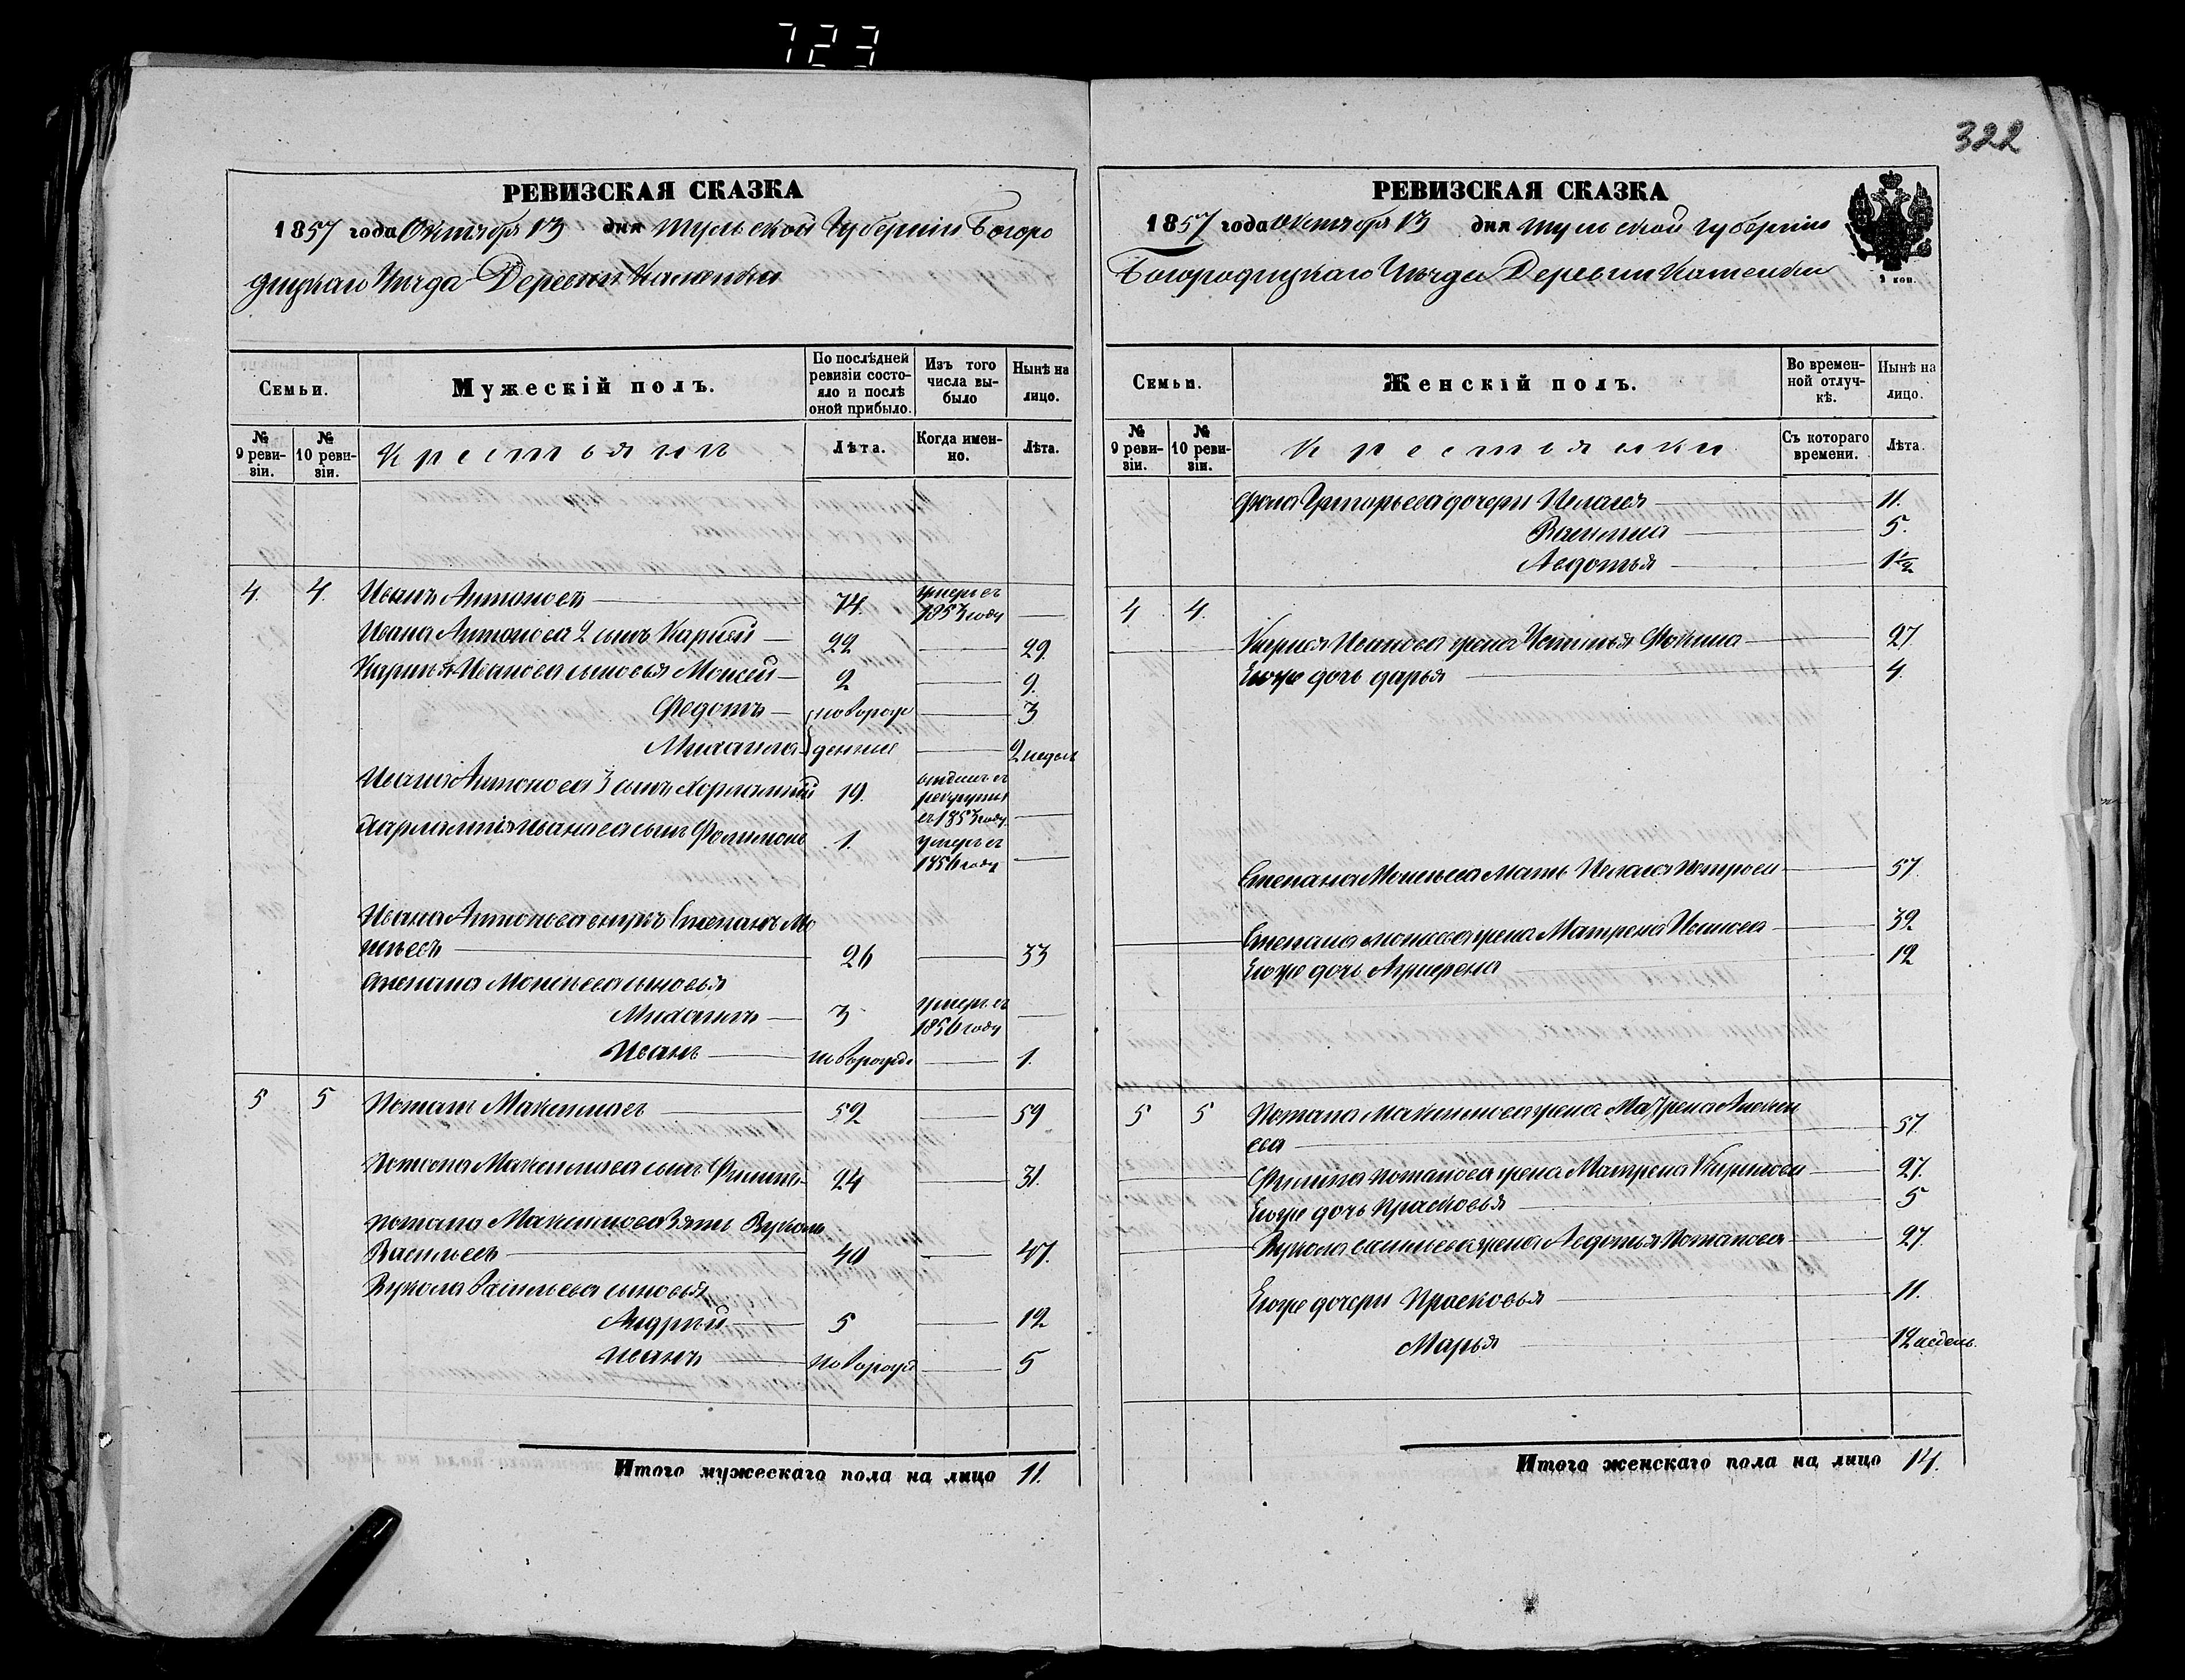 723
322
РЕВИЗСКАЯ СКАЗКА
1857 года Октября 13 дня Тульской Губернiи Богоро
дицкаго Уѣзда Деревни Каменки
Семьи.
Мужескій полъ.
По послѣдней ревизіи состояло и послѣ оной прибыло.
Изъ того числа выбыло
Нынѣ на лицо.
№ 9 ревизіи.
№ 10 ревизіи.
Крестьянъ
Лѣта.
Когда именно.
Лѣта.
4. 4. Иванъ Антоновъ 74. умеръ въ 1853 году
Ивана Антонова 2 сынъ Карнѣй 22 29.
Карнѣя Иванова сыновья Моисей 2 9.
Федотъ новорож 3
Михаила денные 2 недѣл
Ивана Антонова 3 сынъ Харлампiй 19. въ рекруты въ 1853 году
Харлампiя Иванова сынъ Филимонъ 1. умеръ въ 1856 году
Ивана Антонова внукъ Степанъ Мо
исѣевъ 26 33
Степана Моисѣева сыновья
Михаилъ 3 умеръ въ 1856 году
Иванъ новорожд. 1.
5 5 Потапъ Максимовъ 52 59
Потапа Максимова сынъ Филипъ 24 31.
Потапа Максимова Зять Вуколъ
Васильевъ 40 47.
Вукола Васильева сыновья
Андрѣй 5 12
Иванъ новорожд 5
Итого мужескаго пола на лицо 11.
РЕВИЗСКАЯ СКАЗКА
1857 года Октября 13 дня Тульской губернiи
Богородицкаго Уѣзда Деревни Каменки
2 коп.
Семьи.
Женскій полъ.
Во временной отлучкѣ.
Нынѣ на лицо.
№ 9 ревизіи.
№ 10 ревизіи.
Крестьянки
Съ котораго времени.
Лѣта.
Григорьева дочери Пелагея 11.
5.
Авдотья 1½
4 4.
Карнѣя Иванова жена Фокина 27.
Его же дочь дарья 4.
Степана Моисѣева Мать Пелагея Петрова 57.
Степана моисѣева жена Матрена Иванова 32
Его же дочь Агрифена 12
5 5 Потапа Максимова жена Матрена
ева 57.
Филипа потапова жена Матрена Кирилова 27.
Его же дочь Прасковья 5
Вукола васильева жена Авдотья Потапова 27.
Его же дочери Прасковья 11.
Марья 12 недѣль.
Итого женскаго пола на лицо 14.